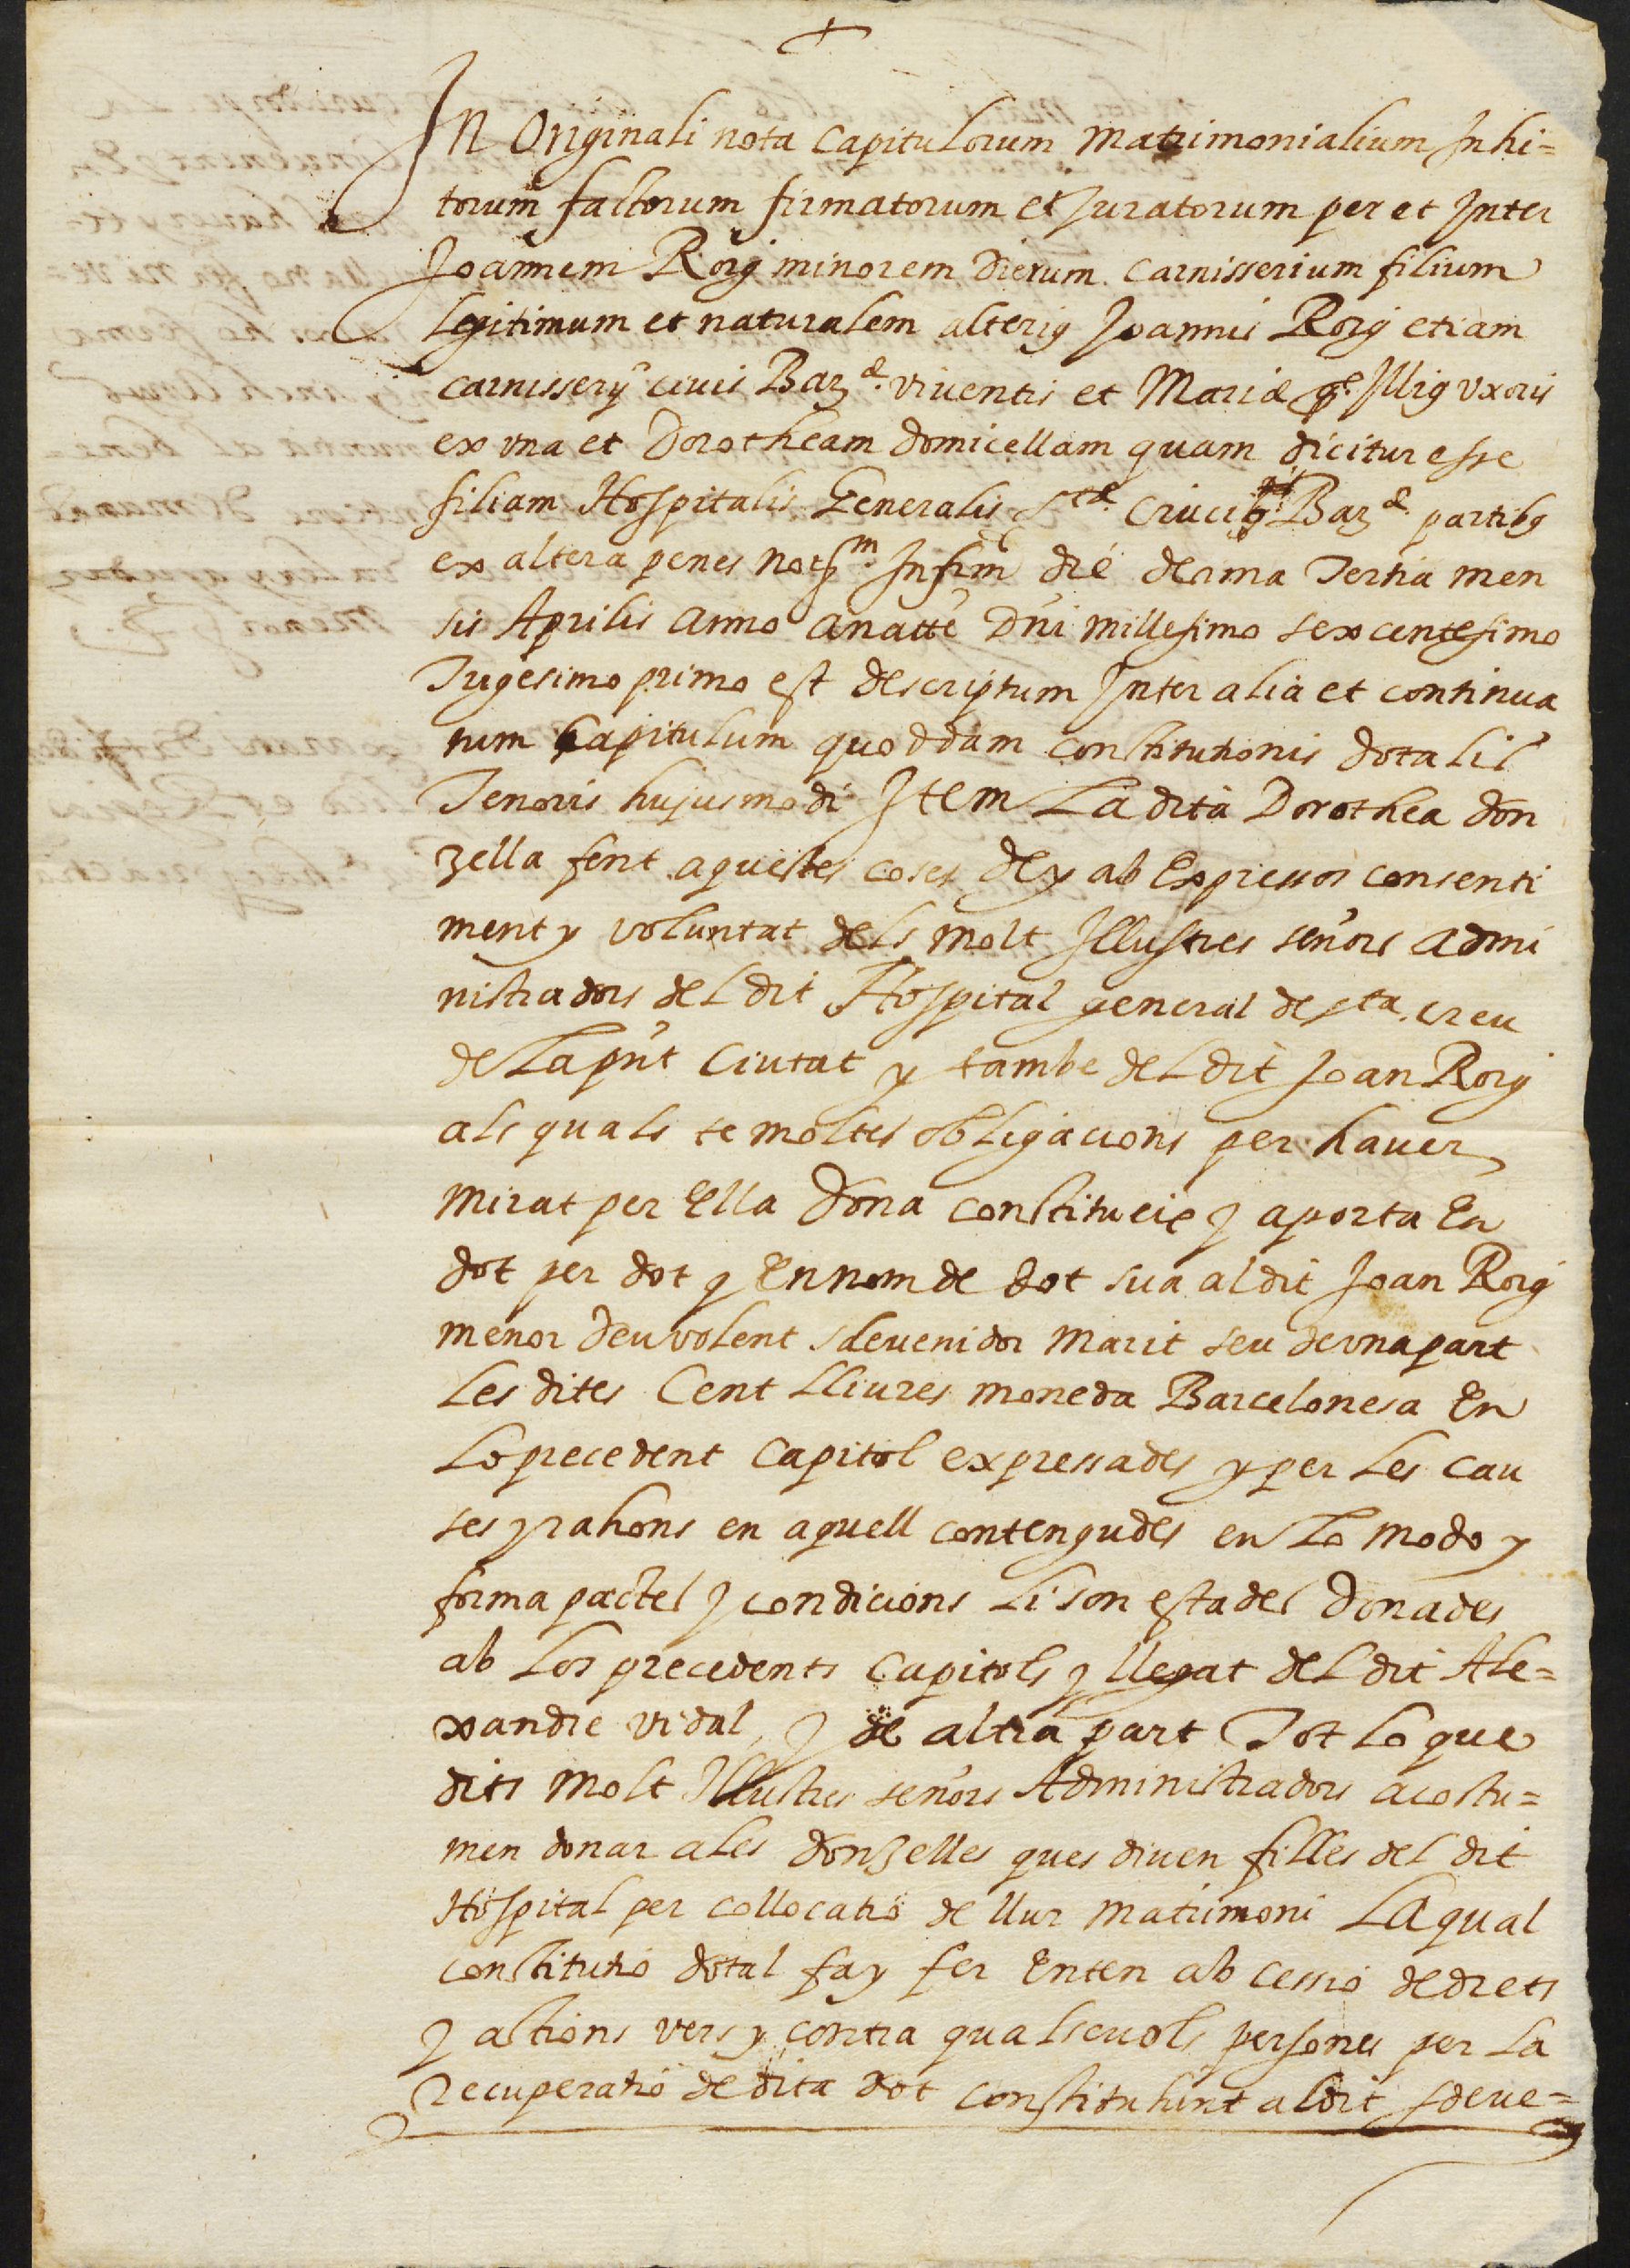 +
In Originali nota Capitulorum Matrimonialium Inhi=
torum factorum firmatorum et Juratorum per et Inter
Joannem Roig minorem dierum Carnisserium filium
Legitimum et naturalem alterius Joannis Roig etiam
carnisserÿ civis Barᵃ. viventis et Mariæ qᵒ. Illius Vxoris
ex vna et Dorotheam domicellam quam dicitur esse
filiam Hospitalis Generalis Stæ. Crucis Barᵃ. partibus
ex altera penes notm. Infrm die decima Tertia men
sis Aprilis Anno anatte Dñi millesimo sexcentesimo
Trigesimo primo est descriptum Inter alia et continua
tum Capitulum quoddam constitutionis dotalis
Tenoris hujusmodi Item La dita Dorothea don
zella fent aquestes coses de y ab Expressos consenti
ment y voluntat dels molt Illustres señors admi
nistradors del dit Hospital general de Sta. creu
de La pñt Ciutat y tambe del dit Joan Roig
als quals te moltes obligacions per haver
mirat per Ella dona constitueix y aporta En
dot per dot y En nom de dot sua al dit Joan Roig
menor deu volent sdevenidor marit seu de vna part
Les dites Cent Lliures moneda Barcelonesa En
Lo precedent Capitol expressades y per Les cau
ses y rahons en aquell contengudes en Lo modo y
forma pactes y condicions Li son estades donades
ab Los precedents Capitols y llegat del dit Ale=
xandre vidal, y de altra part Tot Lo que
dits Molt Illustres señors Administradors acostu=
men donar a Les donzelles ques diuen filles del dit
Hospital per collocatio de llur Matrimoni La qual
constitutio dotal fa y fer Enten ab cessio de drets
y actions vers y contra qualsevols persones per La
recuperatio de dita dot constituhint al dit sdeve=